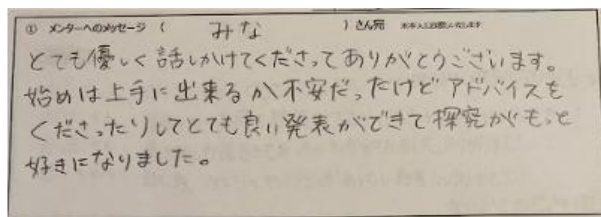 ① メンターへのメッセージ ( みな ) さん宛
とても優しく話しかけてくださってありがとうございます。
始めは上手に出来るか不安だったけどアドバイスを
くださったりしてとても良い発表ができて探究がもっと
好きになりました。